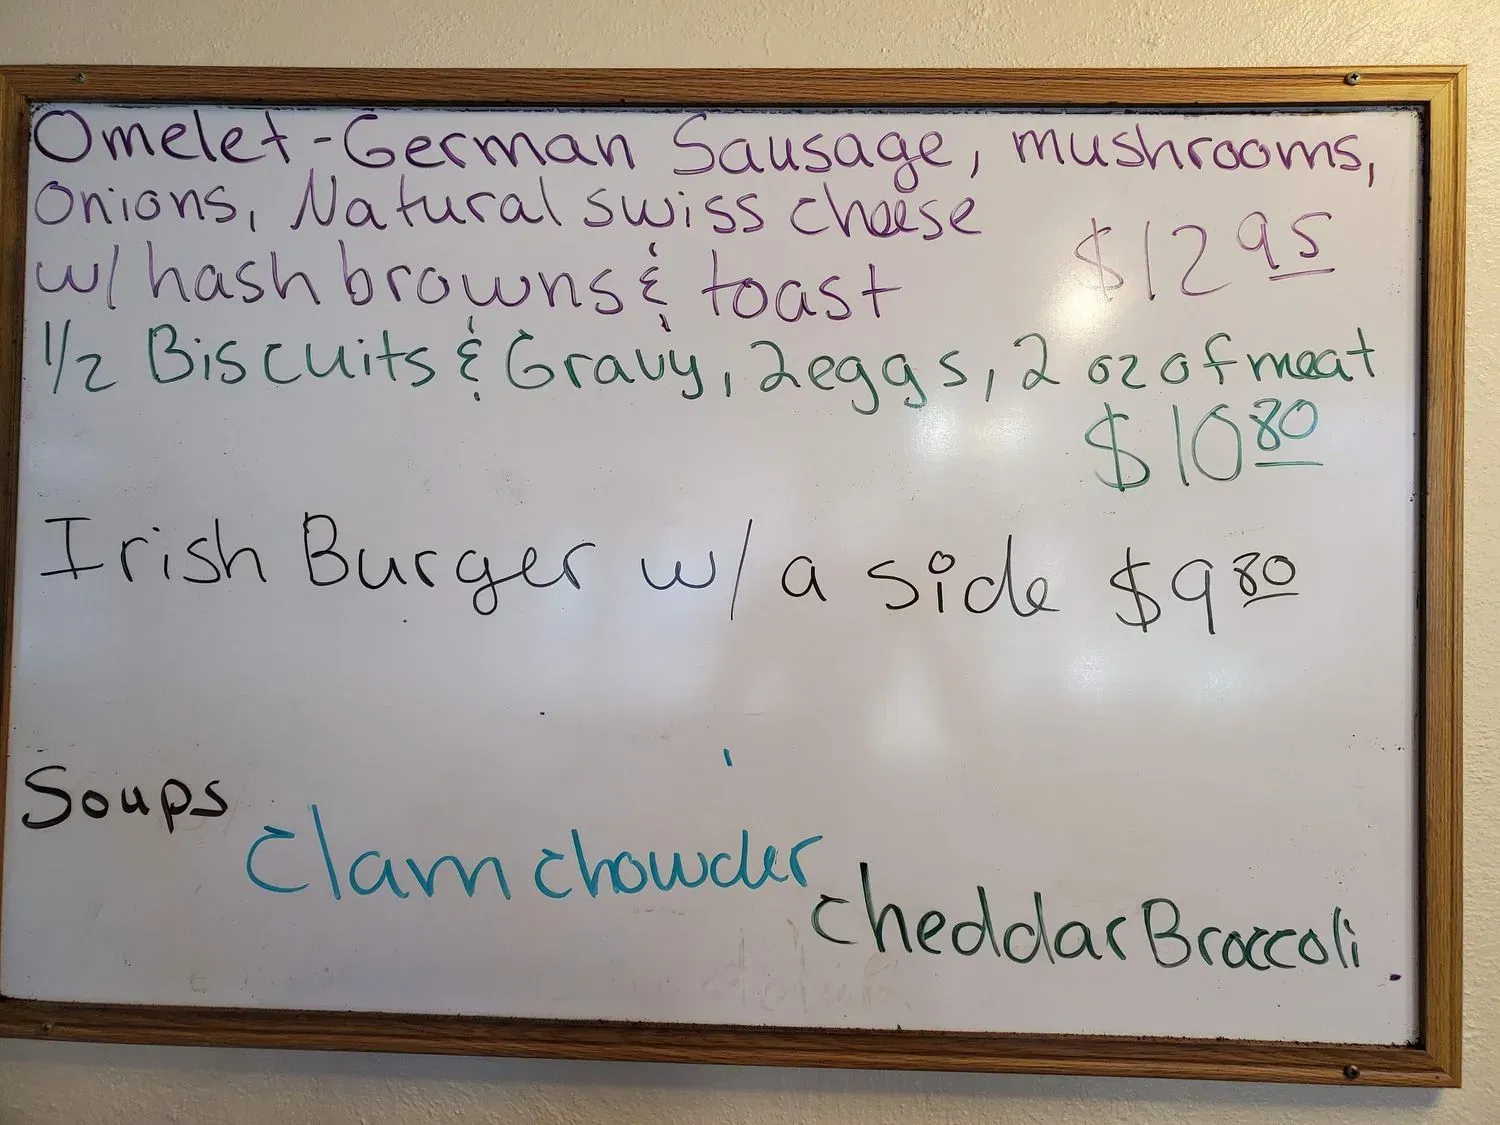 Omelet - German Sausage, mushrooms,
Onions, Natural swiss cheese
w/ hash browns & toast $12 95
1/2 Biscuits & Gravy, 2 eggs, 2 oz of meat
$10 80
Irish Burger w/ a side $9 80
Soups
Clam chowder
cheddar Broccoli